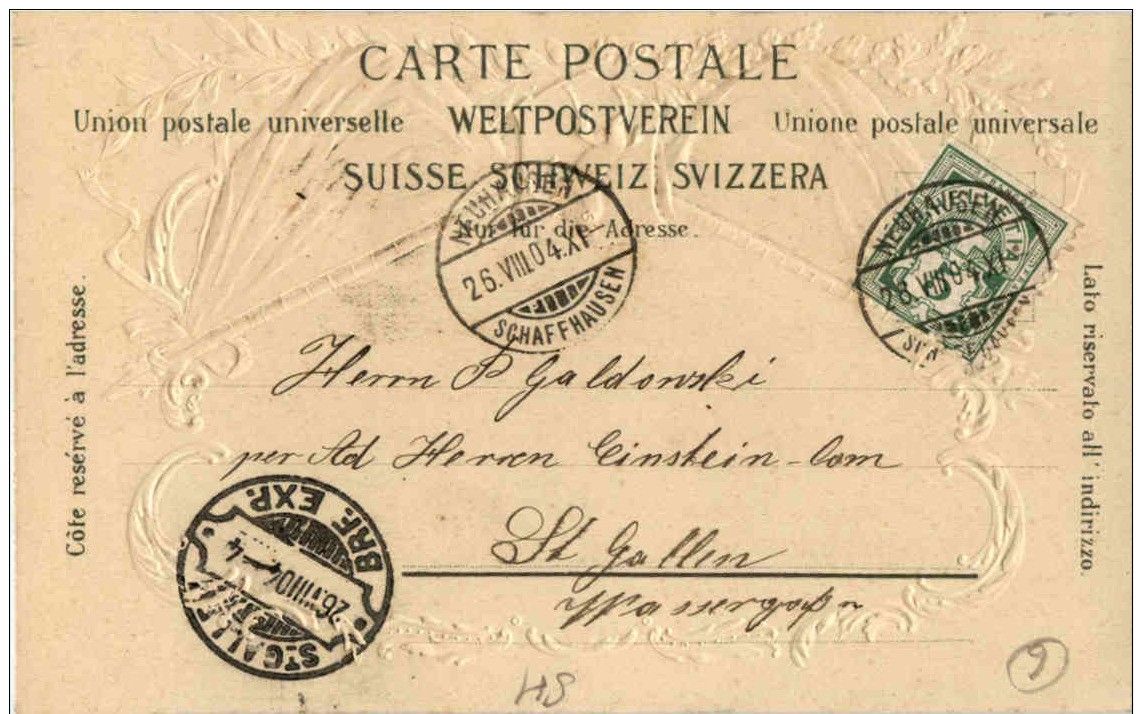 CARTE POSTALE
Union postale universelle WELTPOSTVEREIN Unione postale universale
SUISSE SCHWEIZ SVIZZERA
Nur für die Adresse.
Côte resérvé à l'adresse.
Lato riservato all' indirizzo.
NEUHAUSEN
26.VIII.04.XI
SCHAFFHAUSEN
NEUHAUSEN
26.VIII.04.XI
Herrn P Galdowski
per Ad Herren Einstein-Com
St Gallen
Wassergasse
BRF. EXP.
26.VIII.04 - 4
ST. GALLEN
SH